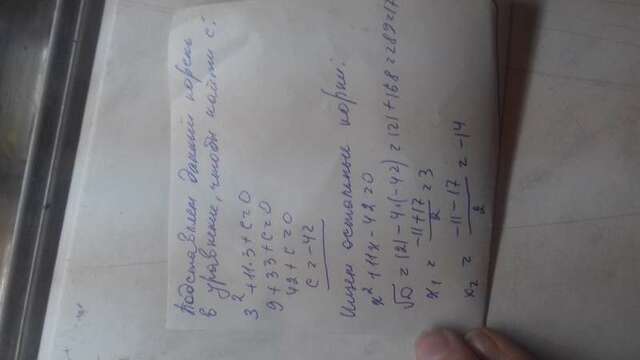 Подставляем данный корень
в уравнение, чтобы найти с:
3² + 11·3 + c = 0
9 + 33 + c = 0
42 + c = 0
c = -42
Ищем остальные корни:
x² + 11x - 42 = 0
√D = 121 - 4·(-42) = 121 + 168 = 289 = 17
x₁ = (-11 + 17)/2 = 3
x₂ = (-11 - 17)/2 = -14